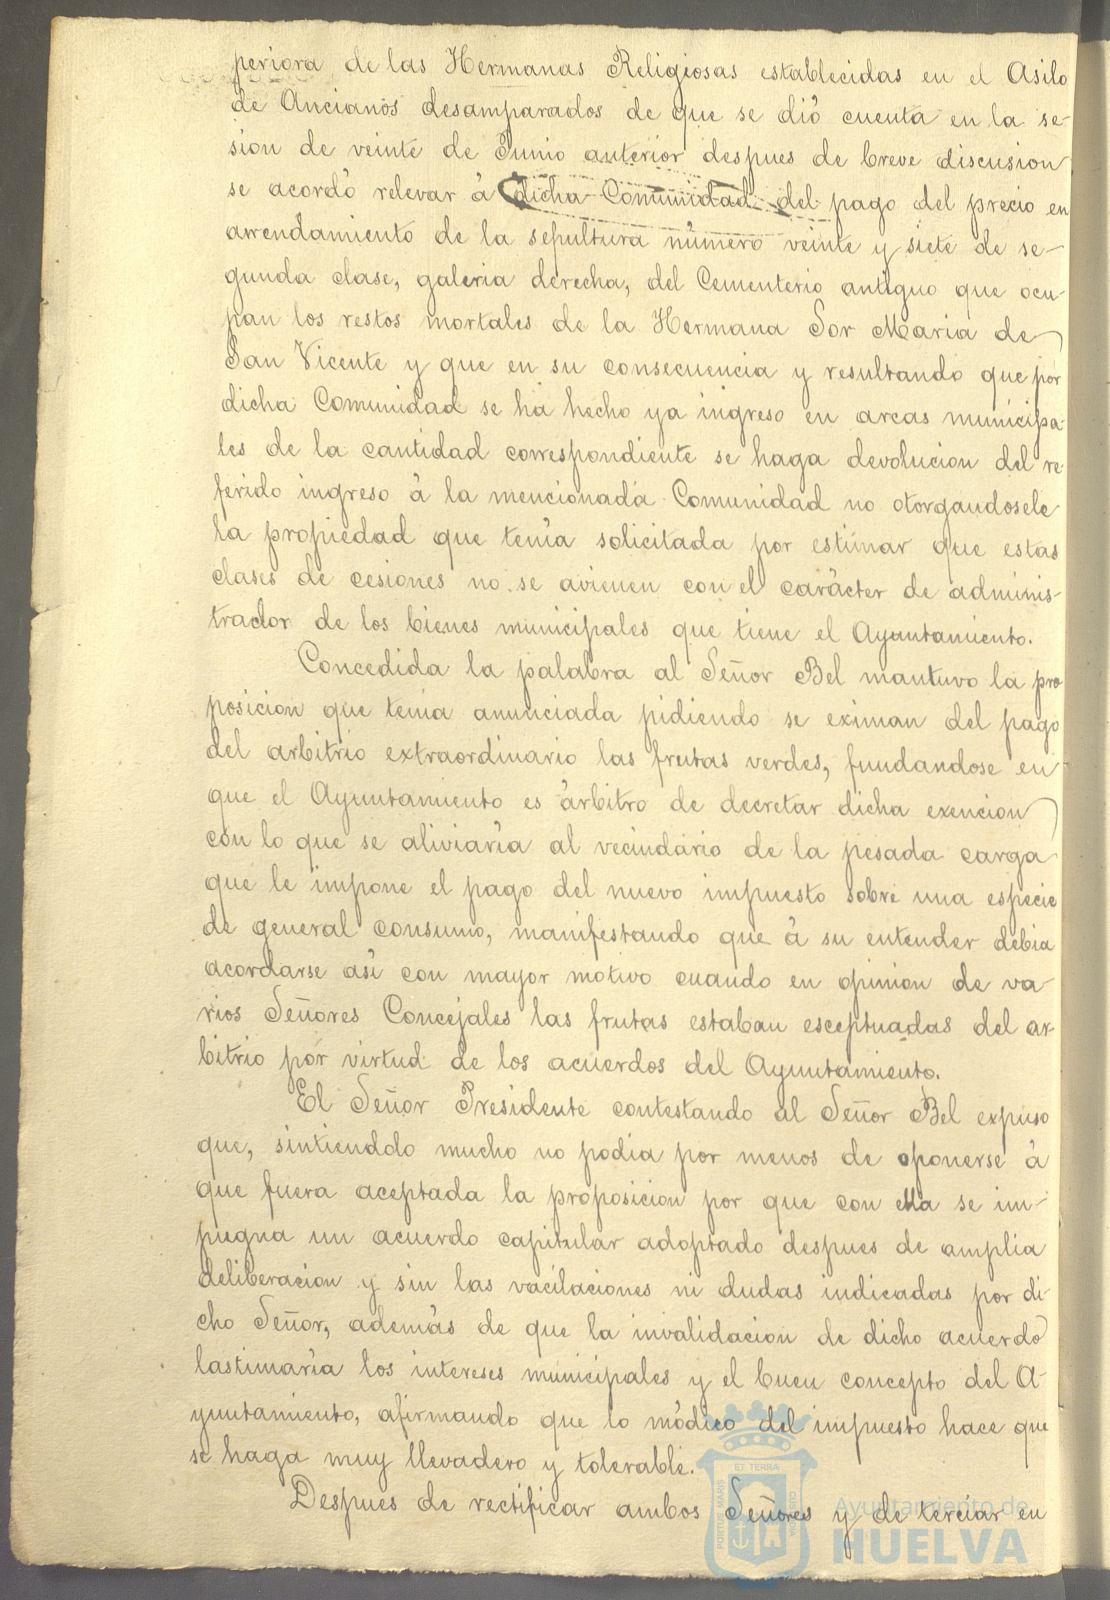 periora de las Hermanas Religiosas establecidas en el Asilo
de Ancianos desamparados de que se dió cuenta en la se-
sion de veinte de Junio anterior despues de breve discusion
se acordó relevar á dicha Comunidad del pago del precio en
arrendamiento de la sepultura número veinte y siete de se-
gunda clase, galeria derecha, del Cementerio antiguo que ocu-
pan los restos mortales de la Hermana Sor Maria de
San Vicente y que en su consecuencia y resultando que por
dicha Comunidad se ha hecho ya ingreso en arcas municipa-
les de la cantidad correspondiente se haga devolucion del re-
ferido ingreso á la mencionada Comunidad no otorgandosele
la propiedad que tenia solicitada por estimar que estas
clases de cesiones no se avienen con el carácter de adminis-
trador de los bienes municipales que tiene el Ayuntamiento.
Concedida la palabra al Señor Bel mantuvo la pro
posicion que tenia anunciada pidiendo se eximan del pago
del arbitrio extraordinario las frutas verdes, fundandose en
que el Ayuntamiento es árbitro de decretar dicha exencion
con lo que se aliviaría al vecindario de la pesada carga
que le impone el pago del nuevo impuesto sobre una especie
de general consumo, manifestando que á su entender debia
acordarse así con mayor motivo cuando en opinion de va-
rios Señores Concejales las frutas estaban esceptuadas del ar-
bitrio por virtud de los acuerdos del Ayuntamiento.
El Señor Presidente contestando al Señor Bel expuso
que, sintienddo mucho no podia por menos de oponerse á
que fuera aceptada la proposicion por que con ella se im-
pugna un acuerdo capitular adoptado despues de amplia
deliberacion y sin las vacilaciones ni dudas indicadas por di-
cho Señor, además de que la invalidacion de dicho acuerdo
lastimaría los intereses municipales y el buen concepto del A-
yuntamiento, afirmando que lo módico del impuesto hace que
se haga muy llevadero y tolerable.
Despues de rectificar ambos Señores y de terciar en
PORTUS MARIS ET TERRA CUSTODIA
Ayuntamiento de
HUELVA